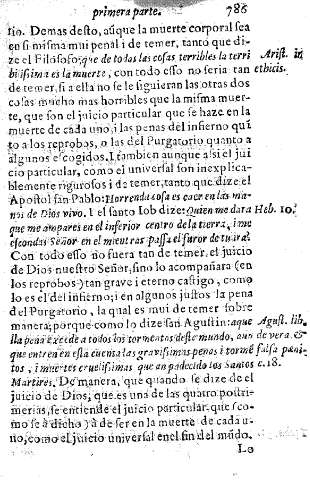 primera parte. 786
rio. Demas desto, aũque la muerte corporal sea
en si misma mui penal i de temer, tanto que di
ze el Filosofo, que de todas las cosas terribles la terri Arist. in
bilisima es la muerte, con todo esso no seria tan ethicis.
de temer, si a ella no se le siguieran las otras dos
cosas mucho mas horribles que la misma muer-
te, que son el juicio particular que se haze en la
muerte de cada uno, i las penas del infierno quã
to a los reprobos, o las del Purgatorio quanto a
algunos escogidos. I tambien aunque assi el jui
cio particular, como el universal son inexplica-
blemente rigurosos i de temer, tanto que dize el
Apostol san Pablo: Horrenda cosa es caer en las ma-
nos de Dios vivo. I el santo Iob dize: Quien me dara Heb. 10.
que me ampares en el inferior centro de la tierra, i me
escondas Señor en el mientras passa el furor de tu ira?
Con todo esso no fuera tan de temer, el juicio
de Dios nuestro Señor, sino lo acompañara (en
los reprobos) tan grave i eterno castigo, como
lo es el del infierno; i en algunos justos la pena
del Purgatorio, la qual es mui de temer sobre
manera; porque como lo dize san Agustin: aque Agust. lib.
lla pena excede a todos los tormentos deste mundo, aun de vera. &
que entren en esta cuenta las gravissimas penas i tormẽ falsa pœni
tos, i muertes cruelissimas que an padecido los Santos c. 18.
Martires. De manera, que quando se dize de el
juicio de Dios, que es una de las quatro postri-
merias, se entiende el juicio particular que (co-
mo se à dicho) à de ser en la muerte de cada u-
no, como el juicio universal en el fin del mũdo.
Lo